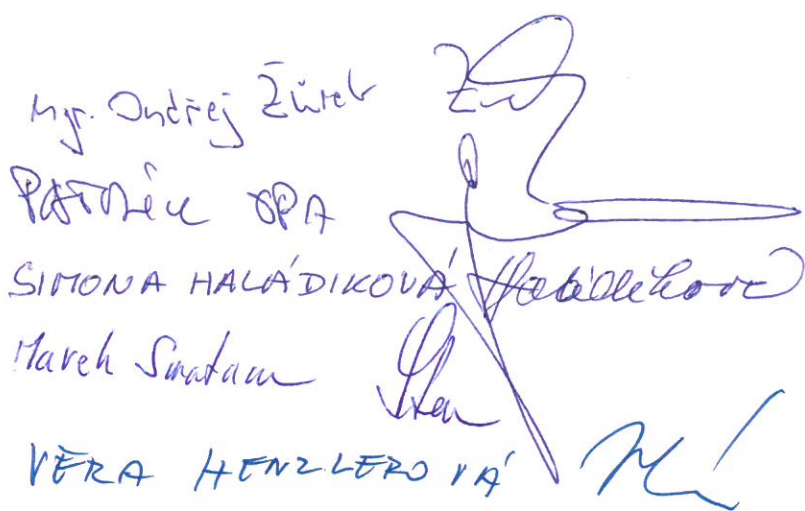 Mgr. Ondřej Žůrek
PATRICK OPA
SIMONA HALÁDIKOVÁ Haládiková
Marek
VĚRA HENZLEROVÁ